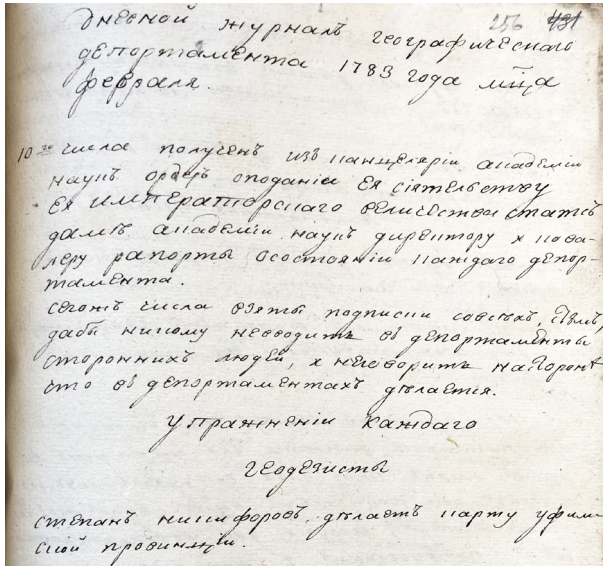 256 431
дневной журналъ географическаго
департамента 1783 года мца
февраля.
10 го числа полученъ изъ канцеляріи академіи
наукъ ордеръ оподаніи ея сіятельству
ея императорскаго величества статсъ
дамѣ академіи наукъ директору и кава-
леру рапорты осостояніи каждаго депор-
тамента.
сегожъ числа взяты подписки совсѣхъ
дабы никому невводить въ депортаменты
стороннихъ людей, и неговорить
что въ депортаментахъ дѣлается.
Упражненіи каждаго
геодезисты
степанъ никифоровъ, дѣлаетъ карту уфим
ской провинціи.